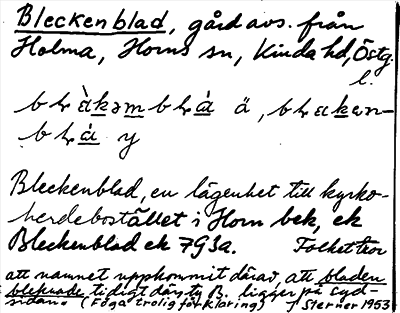 Bleckenblad, gård avs. från
Holma, Horns sn, Kinda hd, Östg.
l.
ä
y
Bleckenblad, en lägenhet till kyrko-
herdebostället i Horn bek, ek
Bleckenblad ek 793a. Folket tror
att namnet uppkommit därav, att bladen
bleknade tidigt där, ty B. ligger på syd-
sidan. (Föga trolig förklaring) J Sterner 1953